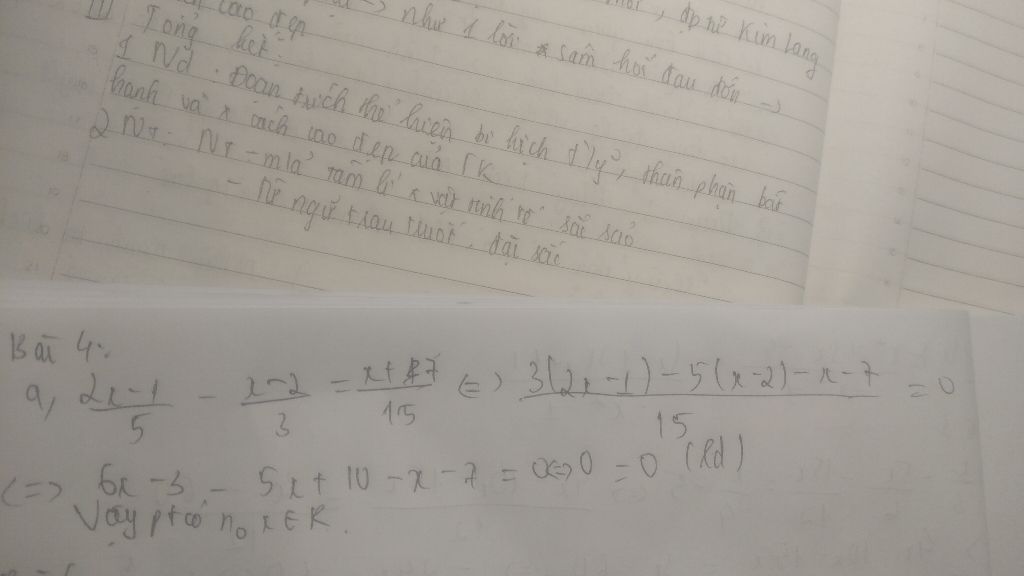 cao đẹp → như 1 lời * sám hối đau đớn →
Kim Lang
III Tổng kết:
1 Nd. Đoạn trích thể hiện bi kịch t/y, thân phận bất
hạnh và x cách cao đẹp của TK
2 NT: NT - m/tả tâm lí x vật tinh tế sắc sảo
- từ ngữ trau truốt, đặc sắc
Bài 4:
a, 2x-1/5 - x-2/3 = x+7/15 <=> 3(2x-1)-5(x-2)-x-7/15 = 0
<=> 6x-3-5x+10-x-7=0<=>0=0 (lđ)
Vậy pt có n₀ x∈R.